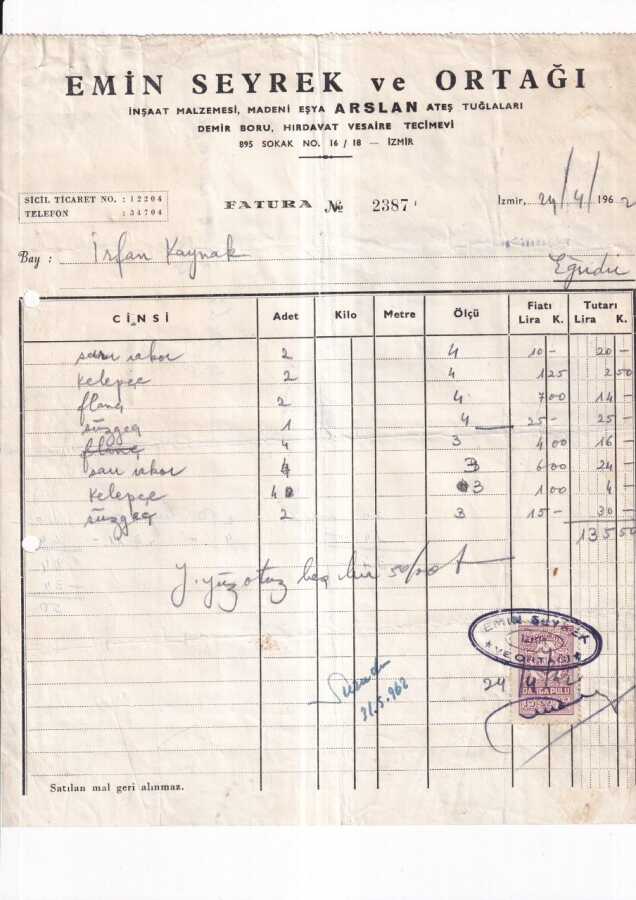 EMİN SEYREK ve ORTAĞI
İNŞAAT MALZEMESİ, MADENİ EŞYA ARSLAN ATEŞ TUĞLALARI
DEMİR BORU, HIRDAVAT VESAİRE TECİMEVİ
895 SOKAK NO. 16 / 18 — İZMİR
SİCİL TİCARET NO. : 12204
TELEFON : 34704
FATURA № 2387
İzmir, 24/4/1962
Bay : İrfan Kaynak
Eğridir
CİNSİ Adet Kilo Metre Ölçü Fiatı Lira K. Tutarı Lira K.
sarı rakor 2 4 10 - 20 -
kelepçe 2 4 1 25 2 50
flanç 2 4 7 00 14 -
süzgeç 1 4 25 - 25 -
flanç 4 3 4 00 16 -
sarı rakor 4 3 6 00 24 -
kelepçe 4 3 1 00 4 -
süzgeç 2 3 15 - 30 -
135 50
Y. yüz otuz beş lira 50/00
EMİN SEYREK
İZMİR
VE ORTAĞI
24/4/62
DAMGA PULU
31.5.962
Satılan mal geri alınmaz.